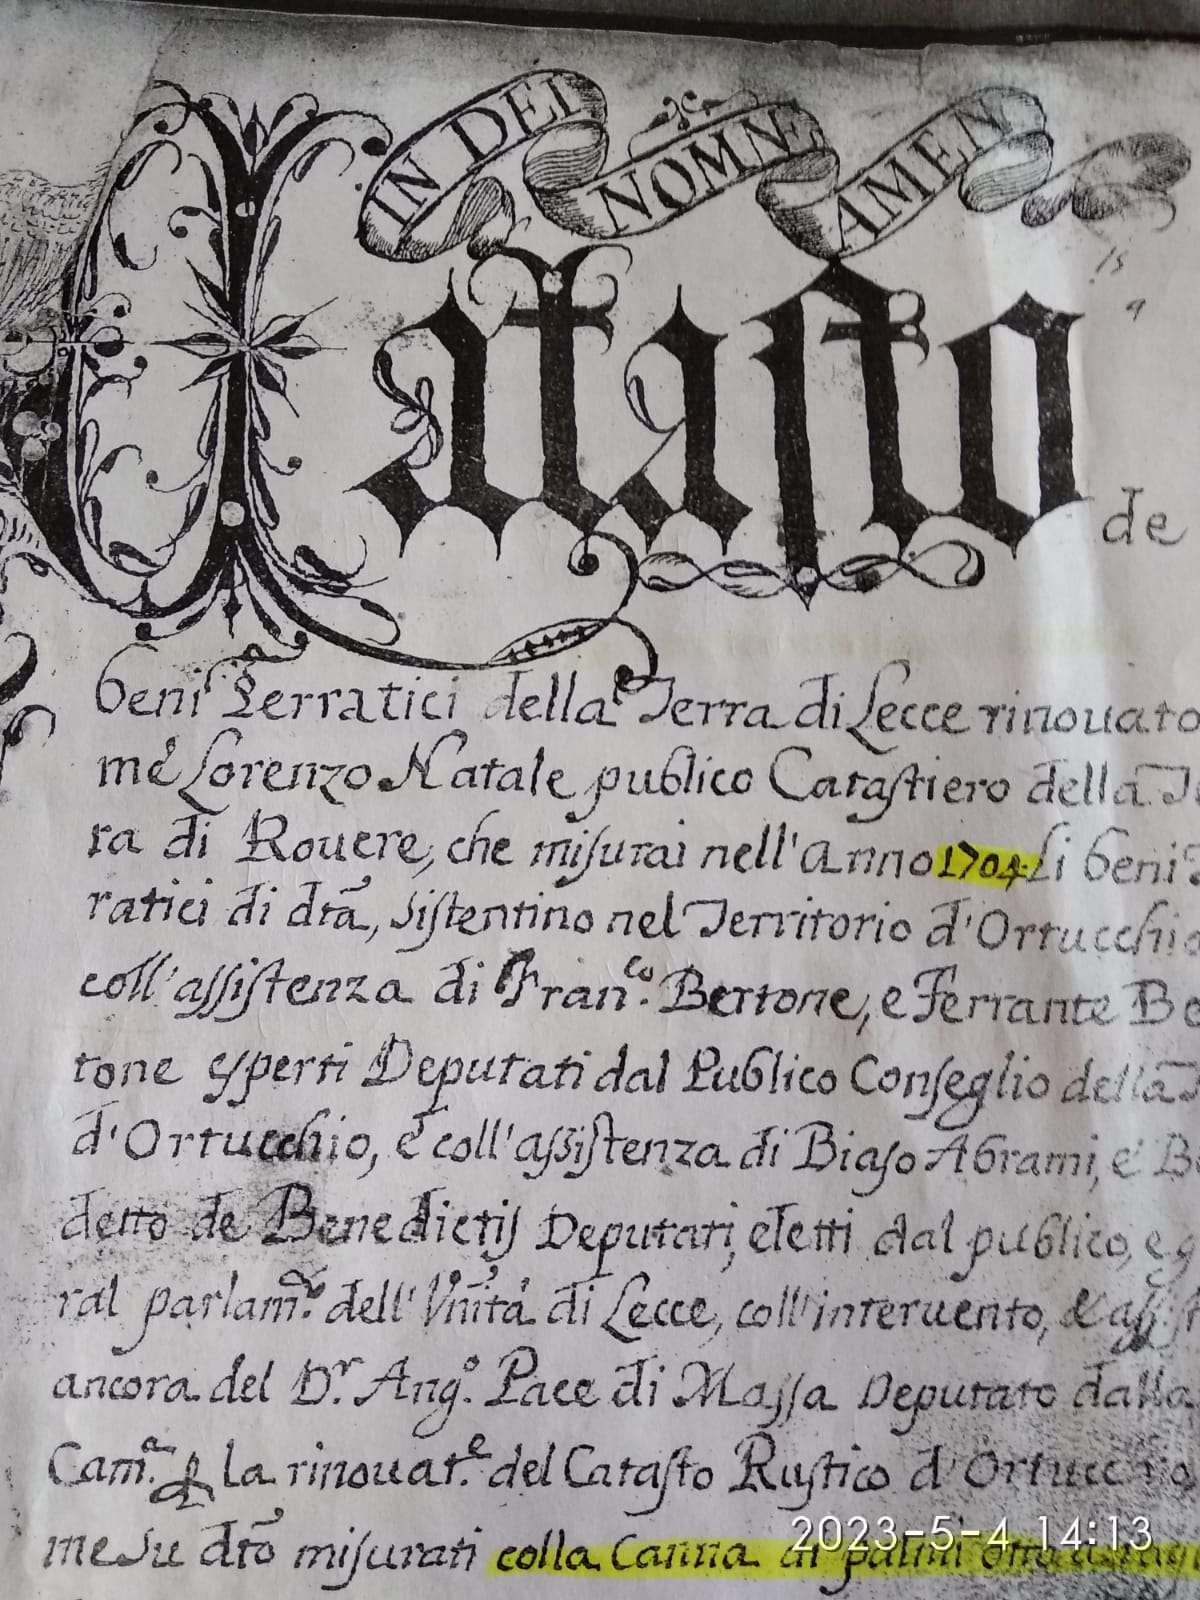 IN DEI NOMNE AMEN
15
9
Catasto de
beni Terratici della Terra di Lecce rinouato
mè Lorenzo Natale publico Catastiero della Te
ra di Rouere, che misurai nell'Anno 1704 Li beni
ratici di dta, sistentino nel Territorio d'Ortucchio
coll'assistenza di Fran.co Bertone, e Ferrante Be
tone esperti Deputati dal Publico Conseglio della
d'Ortucchio, e coll'assistenza di Biaso Abrami, e Be
detto de Benedictis Deputati, eletti dal publico, e g
ral parlam.o dell'Vnità di Lecce, coll'interuento, & assist
ancora del D.r Ang.o Pace di Massa Deputato dalla
Cam.a p la rinouat.e del Catasto Rustico d'Ortucchio
me su dto misurati colla Canna di palmi otto
2023-5-4 14:13